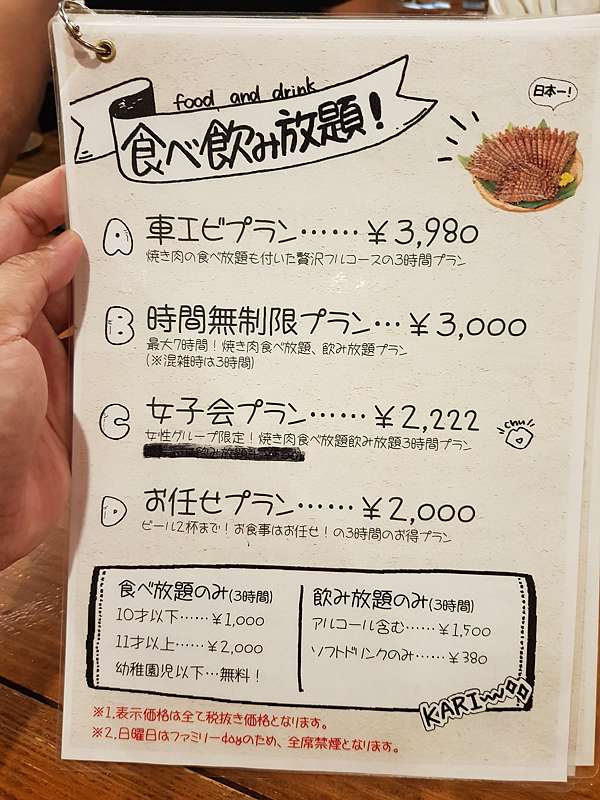 food and drink
食べ飲み放題!
日本一!
A 車エビプラン……¥3,980
焼き肉の食べ放題も付いた贅沢フルコースの3時間プラン
B 時間無制限プラン…¥3,000
最大7時間!焼き肉食べ放題、飲み放題プラン
(※混雑時は3時間)
C 女子会プラン……¥2,222
女性グループ限定!焼き肉食べ放題飲み放題3時間プラン
chu
D お任せプラン……¥2,000
ビール2杯まで!お食事はお任せ!の3時間のお得プラン
食べ放題のみ(3時間)
10才以下……¥1,000
11才以上……¥2,000
幼稚園児以下…無料!
飲み放題のみ(3時間)
アルコール含む……¥1,500
ソフトドリンクのみ……¥380
KARI
※1.表示価格は全て税抜き価格となります。
※2.日曜日はファミリーdayのため、全席禁煙となります。